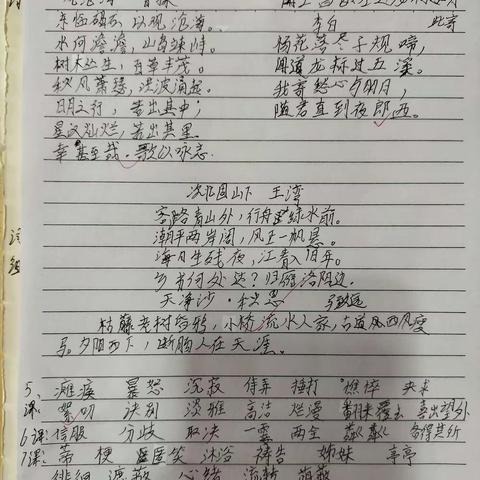 观沧海 曹操
东临碣石,以观沧海。
水何澹澹,山岛竦峙。
树木丛生,百草丰茂。
秋风萧瑟,洪波涌起。
日月之行,若出其中;
星汉灿烂,若出其里。
幸甚至哉,歌以咏志。
李白 此寄
杨花落尽子规啼,
闻道龙标过五溪。
我寄愁心与明月,
随君直到夜郎西。
次北固山下 王湾
客路青山外,行舟绿水前。
潮平两岸阔,风正一帆悬。
海日生残夜,江春入旧年。
乡书何处达?归雁洛阳边。
天净沙·秋思 马致远
枯藤老树昏鸦,小桥流水人家,古道西风瘦
马。夕阳西下,断肠人在天涯。
5、瘫痪 暴怒 沉寂 侍弄 捶打 憔悴 央求
课: 絮叨 诀别 淡雅 高洁 烂漫 翻来覆去 喜出望外
6课:信服 分歧 取决 一霎 两全 各得其所
7课:蒂 梗 匿笑 沐浴 祷告 姊妹 亭亭
徘徊 遮蔽 心绪 流转 荫蔽